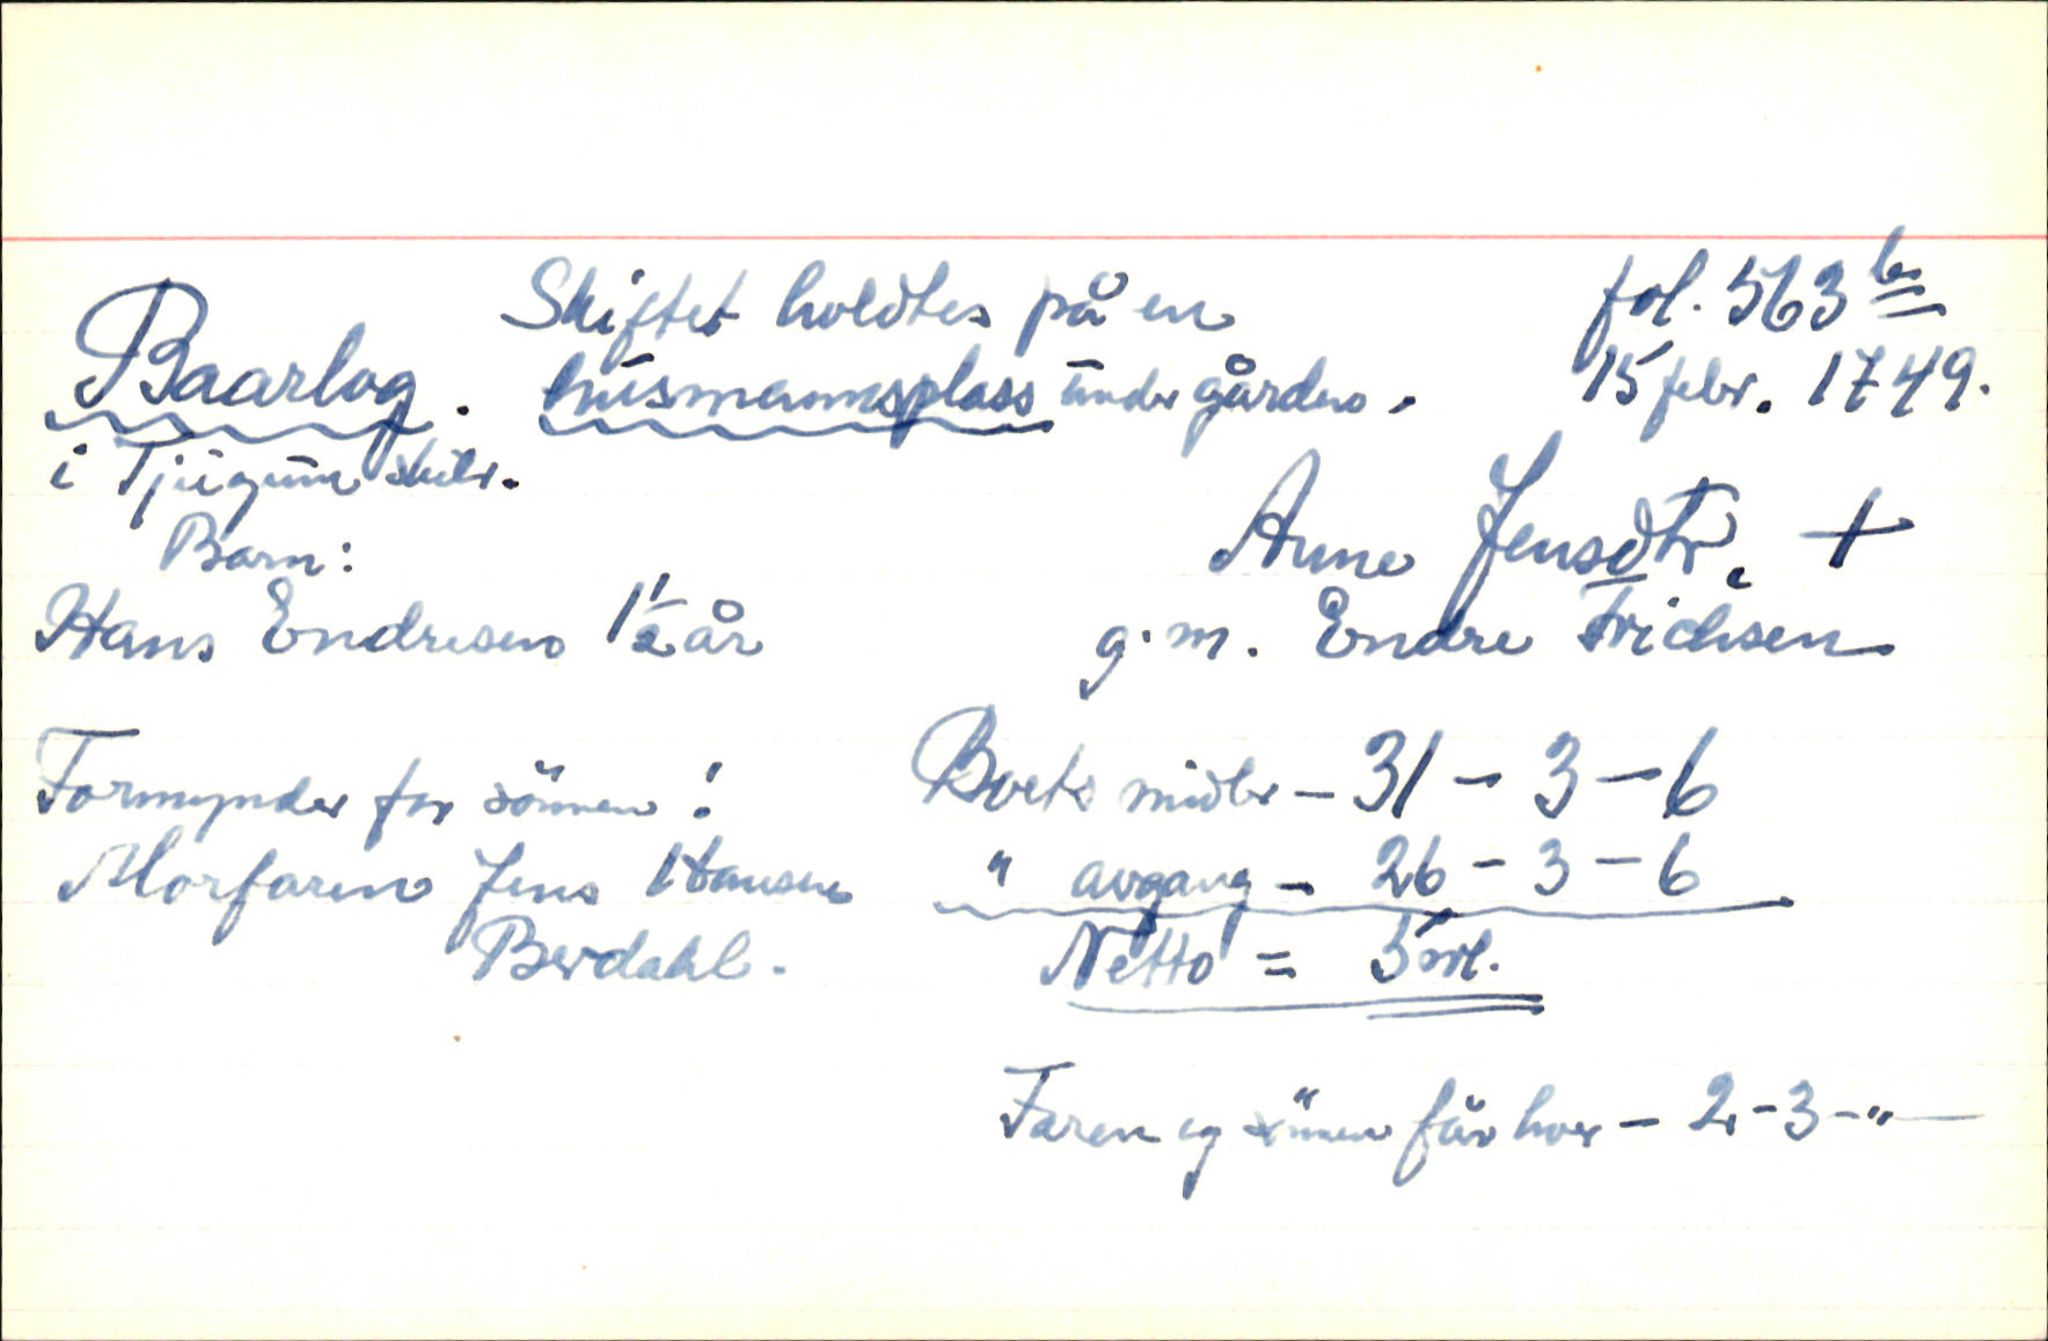 Skiftet holdtes på en
fol. 563 b
Baarlog. husmannsplass under gården.
15 febr. 1749.
i Tjugum skibr.
Barn:
Anne Jensdtr. +
Hans Endresen 1 1/2 år
g.m. Endre Erichsen
Formynder for sönnen:
Morfaren Jens Hansen
Berdahl.
Boets midler - 31 - 3 - 6
" avgang - 26 - 3 - 6
Netto = 5 rdl.
Faren og sönnen får hver - 2 - 3 - "